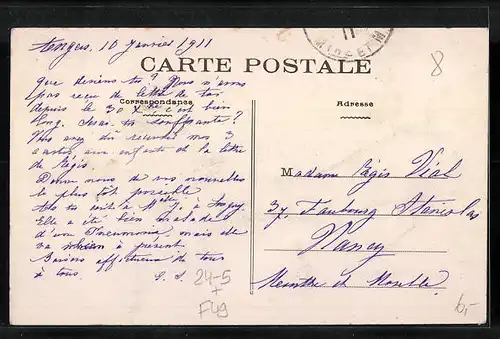 Angers, 10 Janvier 1911
CARTE POSTALE
Que deviens tu? Nous n'avons
pas reçu de lettre de toi
depuis le 30 Xbre c'est bien
long. Serais tu souffrante?
Correspondance
Vous avez dû recevoir nos 3
cartes aux enfants et la lettre
de Régis
Donne nous de vos nouvelles
le plus tôt possible
à
elle a été bien malade
d'une Pneumonie, mais elle
va mieux à présent
Baisers affectueux de tous
à tous.
24-5
+
F49
8
Adresse
Madame Régis Vial
37, Faubourg Stanislas
Nancy
Meurthe et Moselle
6,-
11